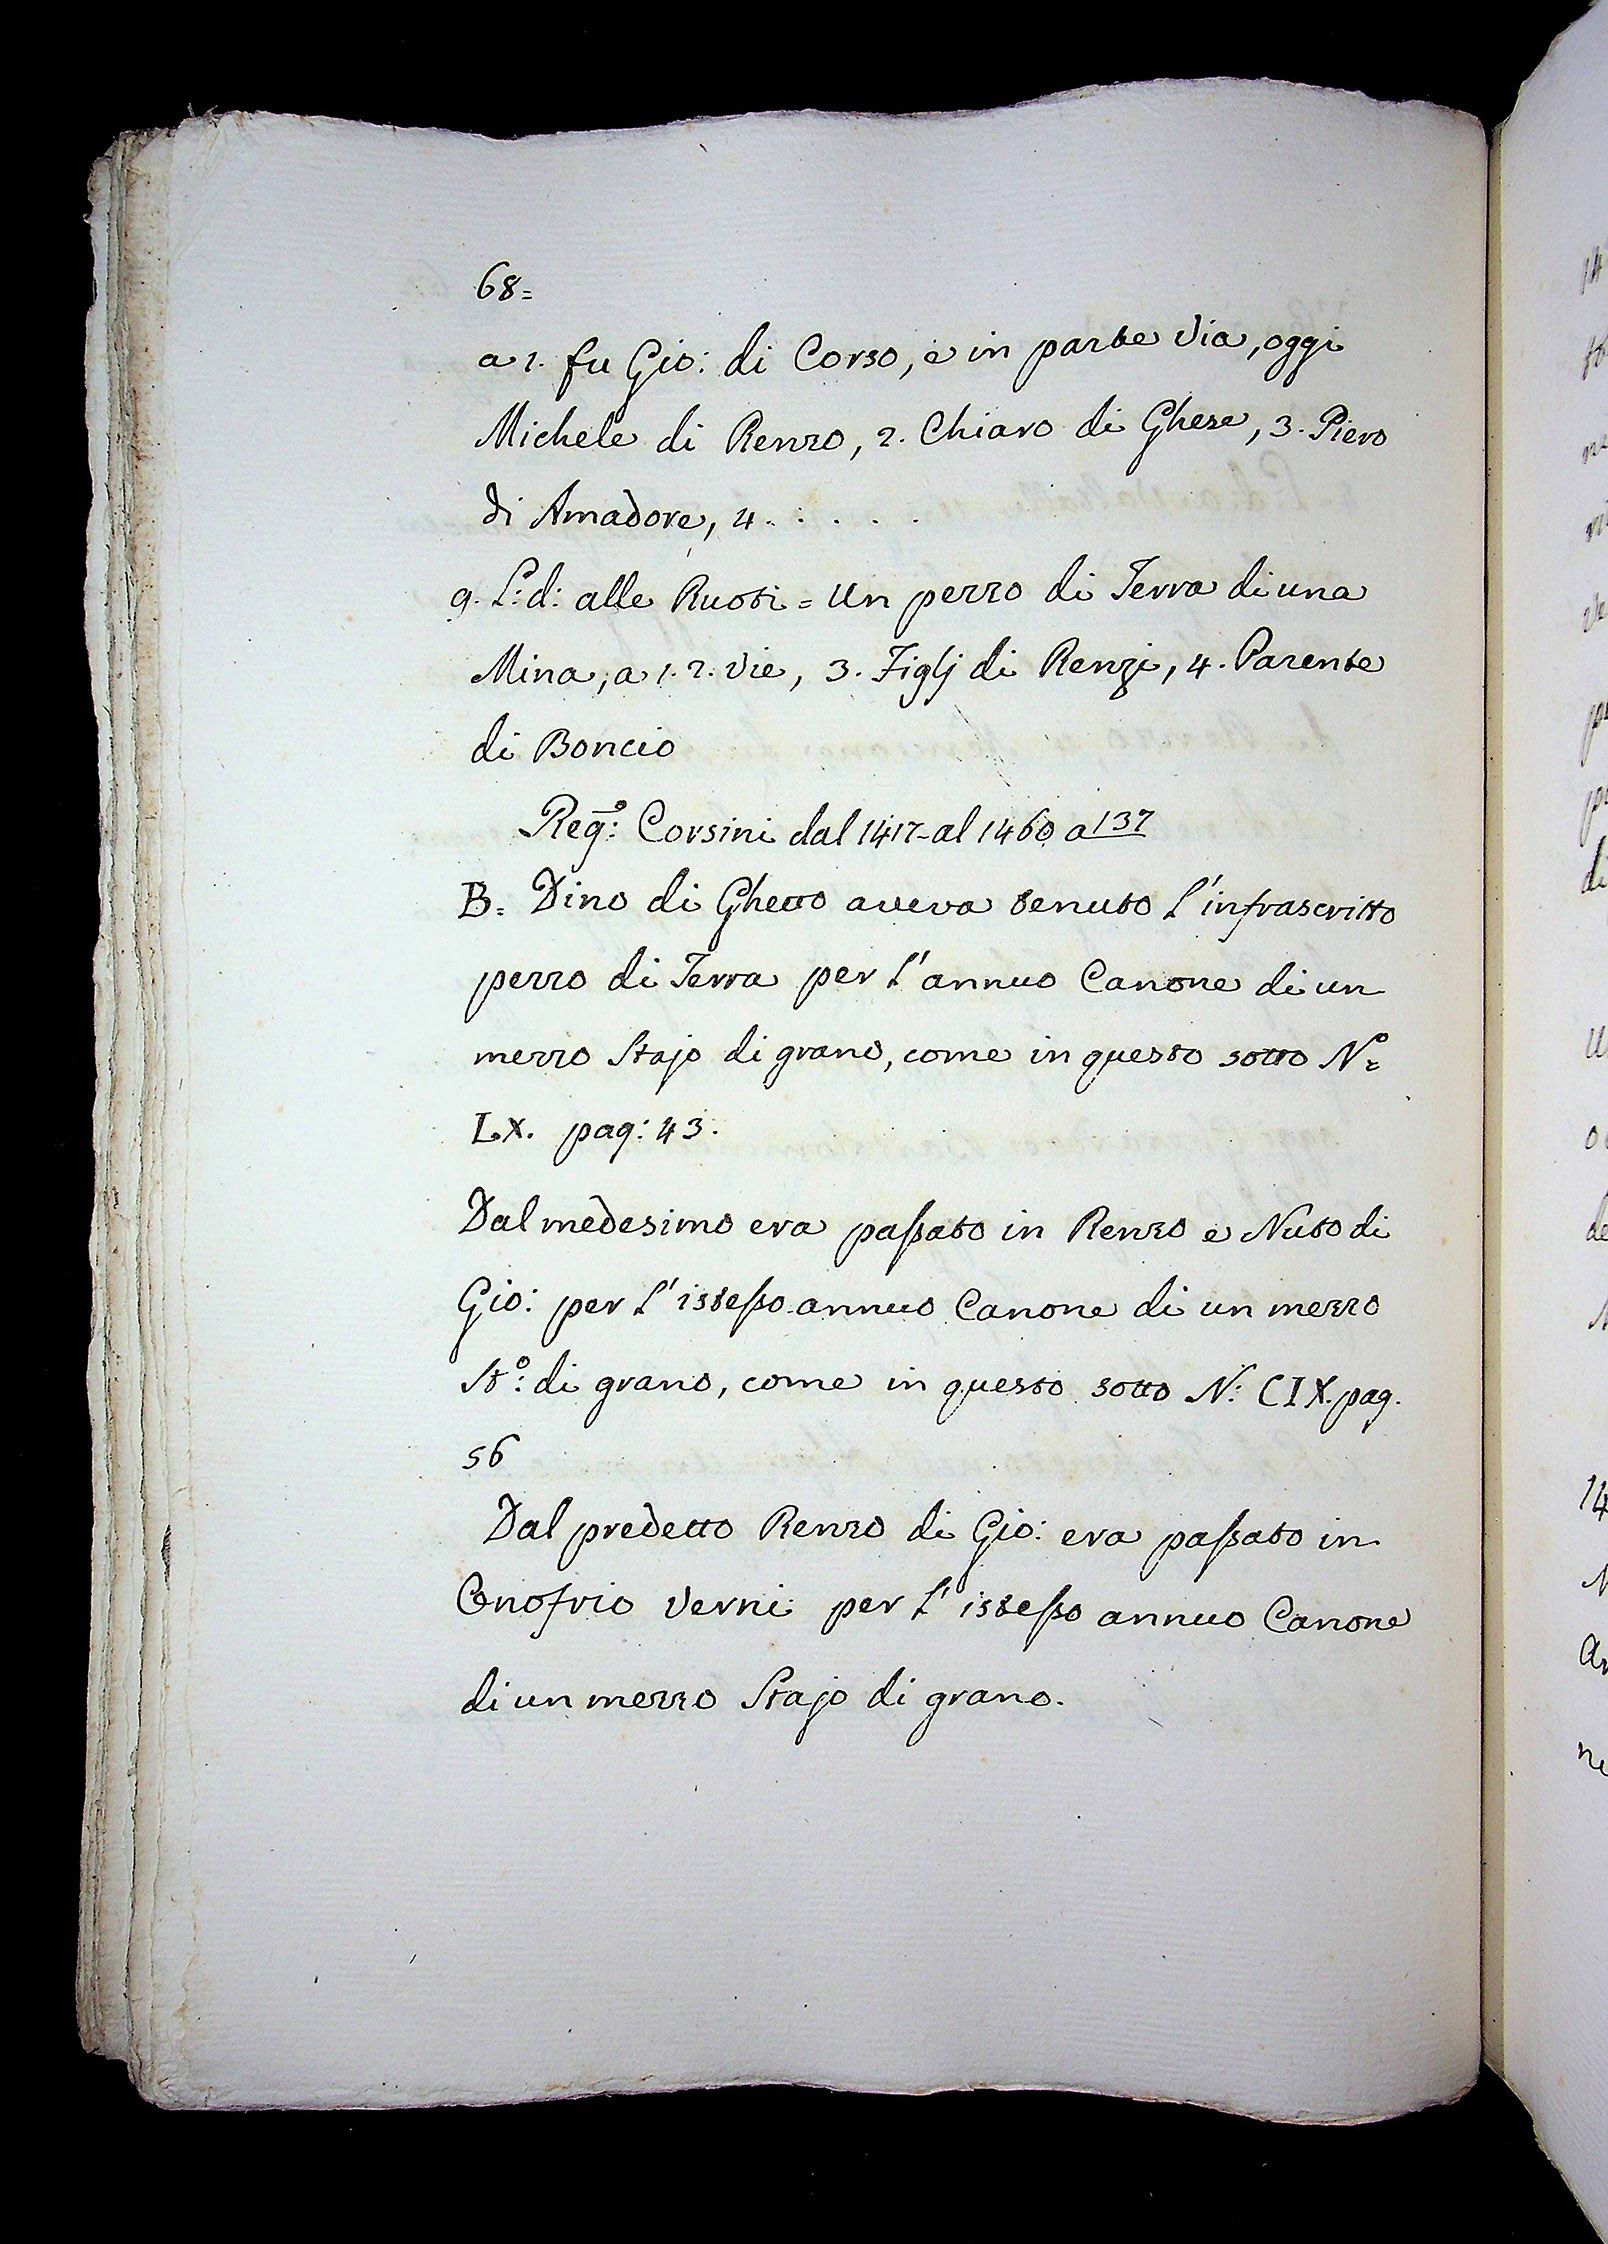 68=
a 1. fu Gio: di Corso, e in parte via, oggi
Michele di Renzo, 2. Chiaro di Ghese, 3. Piero
di Amadore, 4. . . . . .
9. L: d: alle Ruoti = Un pezzo di Terra di una
Mina, a 1. 2. vie, 3. Figlj di Renzi, 4. Parente
di Boncio
Regº: Corsini dal 1417- al 1460 a 137
B= Dino di Ghetto aveva tenuto l'infrascritto
pezzo di Terra per l'annuo Canone di un
mezzo Stajo di grano, come in questo sotto Nº:
LX. pag: 43.
Dal medesimo era passato in Renzo e Nuto di
Gio: per l'istesso annuo Canone di un mezzo
Stº: di grano, come in questo sotto N: CIX. pag.
56
Dal predetto Renzo di Gio: era passato in
Onofrio Verni per l'istesso annuo Canone
di un mezzo Stajo di grano.